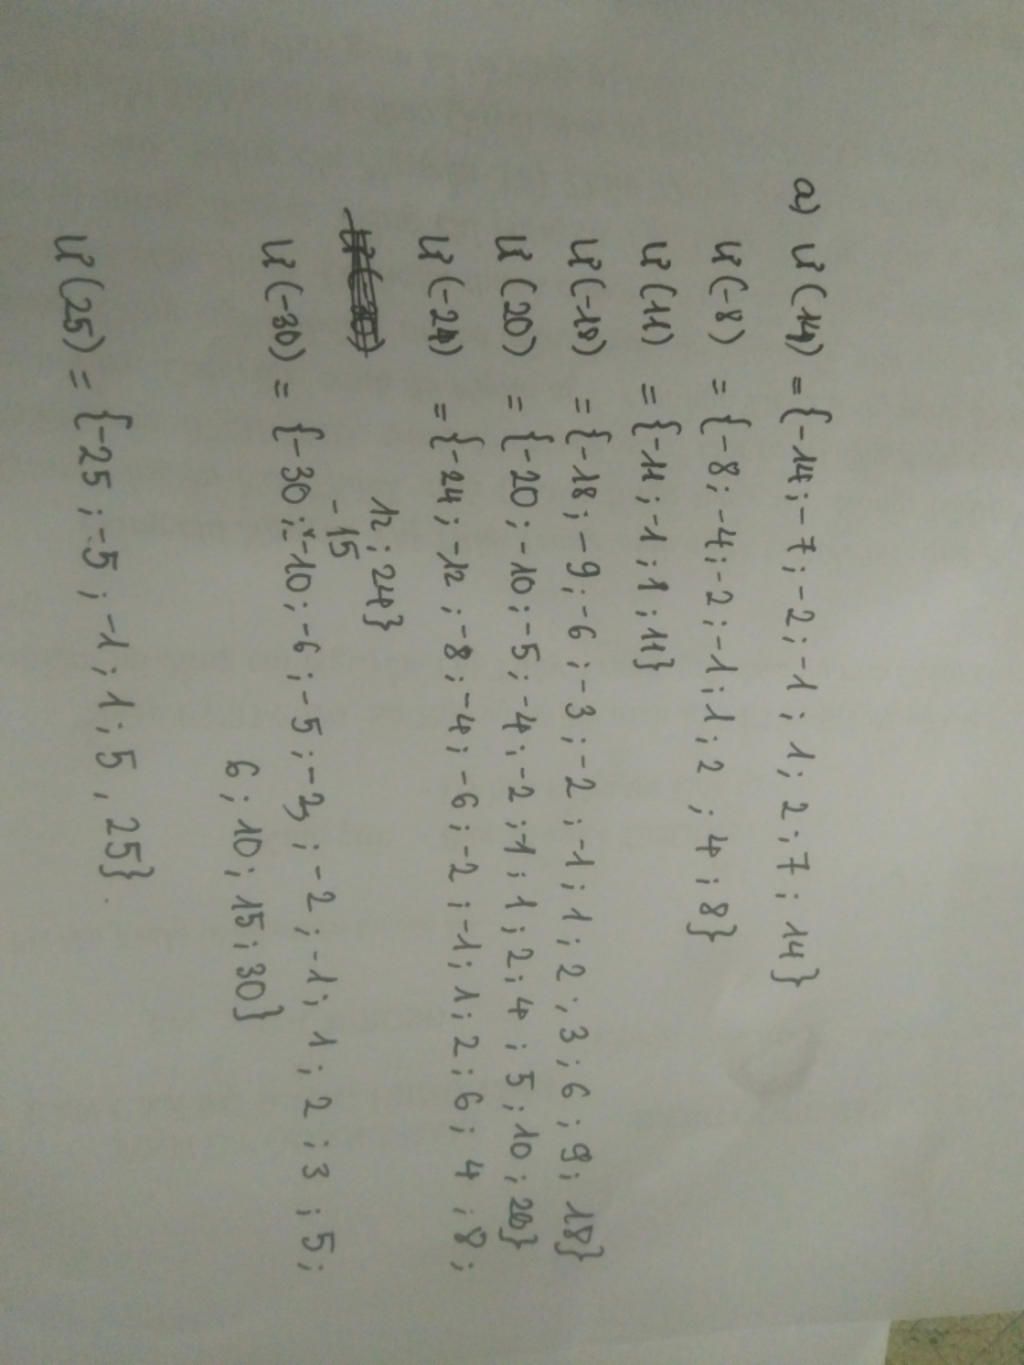 a) Ư(14) = {-14; -7; -2; -1; 1; 2; 7; 14}
Ư(-8) = {-8; -4; -2; -1; 1; 2; 4; 8}
Ư(11) = {-11; -1; 1; 11}
Ư(-18) = {-18; -9; -6; -3; -2; -1; 1; 2; 3; 6; 9; 18}
Ư(20) = {-20; -10; -5; -4; -2; -1; 1; 2; 4; 5; 10; 20}
Ư(-24) = {-24; -12; -8; -4; -6; -2; -1; 1; 2; 6; 4; 8;
12; 24}
-15
Ư(-30) = {-30; -10; -6; -5; -3; -2; -1; 1; 2; 3; 5;
6; 10; 15; 30}
Ư(25) = {-25; -5; -1; 1; 5, 25}